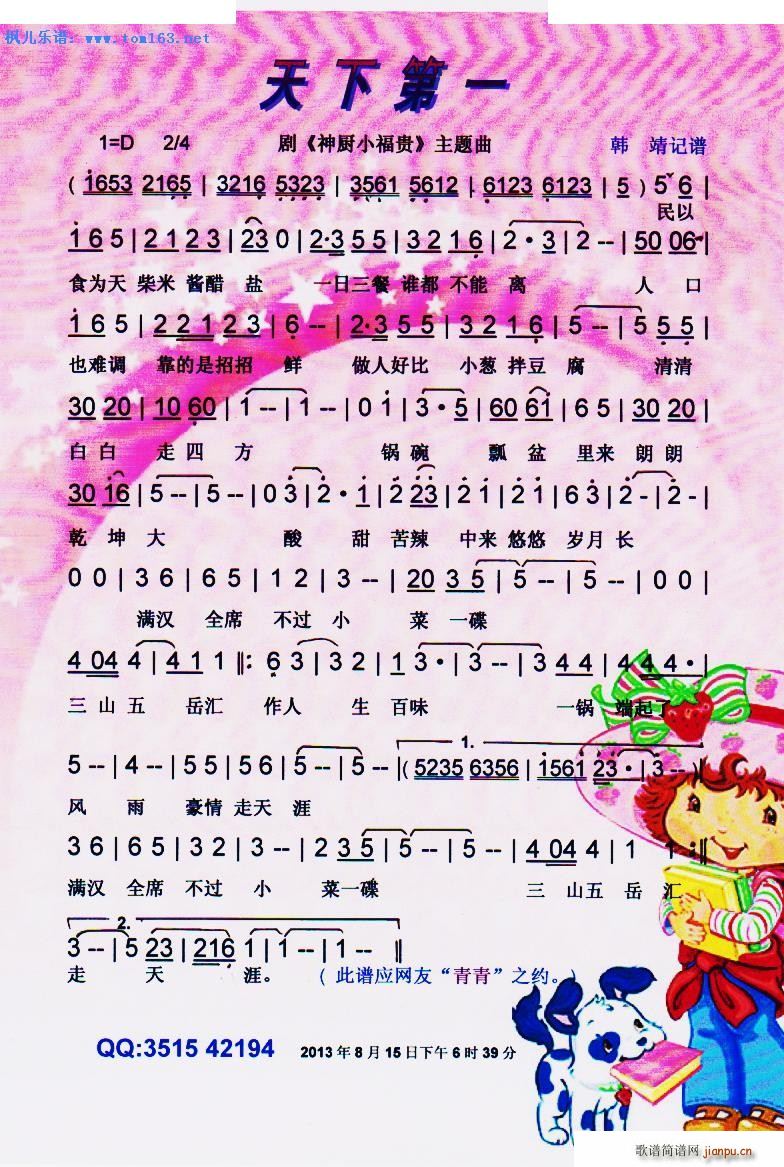 枫儿乐谱：www.tom163.net
天下第一
1=D 2/4 剧《神厨小福贵》主题曲 韩 靖记谱
( 1653 2165 | 3216 5323 | 3561 5612 | 6123 6123 | 5 ) 5 6 |
民以
1 6 5 | 2 1 2 3 | 23 0 | 2·3 5 5 | 3 2 1 6 | 2 · 3 | 2 - - | 50 06 |
食为天 柴米 酱醋 盐 一日三餐 谁都 不能 离 人 口
1 6 5 | 2 2 1 2 3 | 6 - - | 2·3 5 5 | 3 2 1 6 | 5 - - | 5 5 5 |
也难调 靠的是招招 鲜 做人好比 小葱 拌豆 腐 清清
30 20 | 10 60 | 1 - - | 1 - - | 0 1 | 3 · 5 | 60 61 | 6 5 | 30 20 |
白白 走四 方 锅碗 瓢盆 里来 朗朗
30 16 | 5 - - | 5 - - | 0 3 | 2 · 1 | 2 23 | 2 1 | 2 1 | 6 3 | 2 - | 2 - |
乾 坤 大 酸 甜 苦辣 中来 悠悠 岁月 长
0 0 | 3 6 | 6 5 | 1 2 | 3 - - | 20 35 | 5 - - | 5 - - | 0 0 |
满汉 全席 不过 小 菜 一碟
4 04 4 | 4 1 1 :‖: 6 3 | 3 2 | 1 3 · | 3 - - | 3 4 4 | 4 4 4 · |
三 山 五 岳汇 作人 生 百味 一锅 端起了
1.
5 - - | 4 - - | 5 5 | 5 6 | 5 - - | 5 - - | ( 5235 6356 | 1561 23 · | 3 - - )
风 雨 豪情 走天 涯
3 6 | 6 5 | 3 2 | 3 - - | 2 35 | 5 - - | 5 - - | 4 04 4 | 1 1 :‖
满汉 全席 不过 小 菜一碟 三 山五 岳 汇
2.
3 - - | 5 23 | 216 1 | 1 - - | 1 - - ‖
走 天 涯。 ( 此谱应网友“青青”之约。)
QQ:3515 42194 2013 年 8 月 15 日下午 6 时 39 分
歌谱简谱网
jianpu.cn